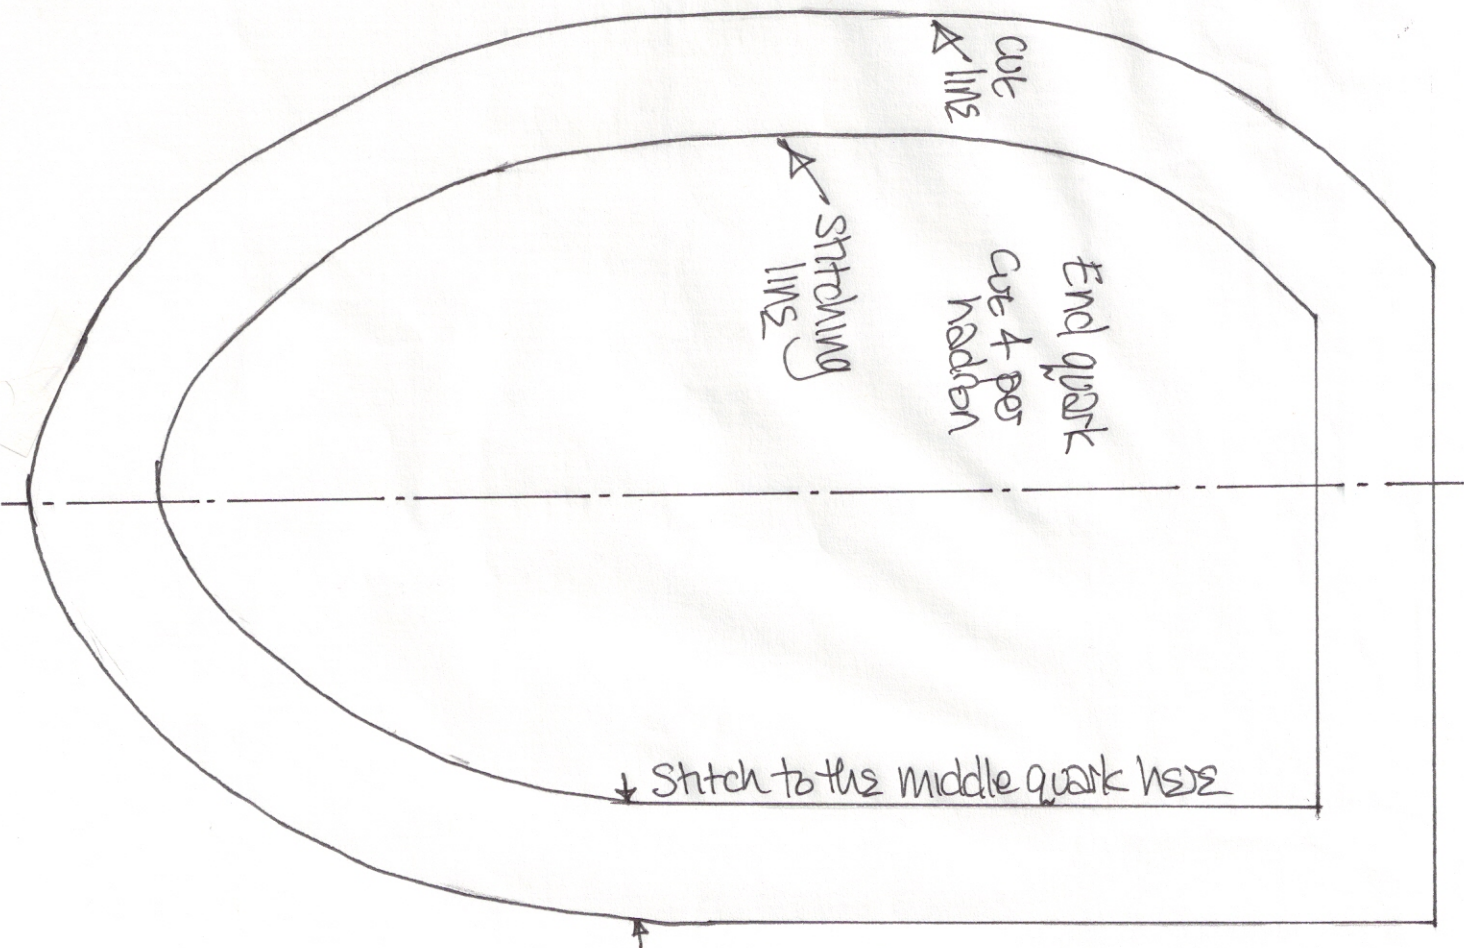 cut
line
Stitching
line
End quark
cut 4 per
hadron
Stitch to the middle quark here